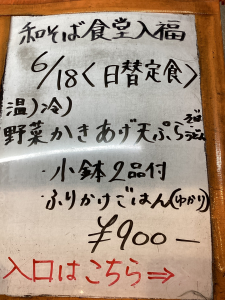 和そば食堂入福
6/18<日替定食>
温)冷)
野菜かきあげ天ぷらそばうどん
・小鉢2品付
・ふりかけごはん(ゆかり)
¥900―
入口はこちら⇒